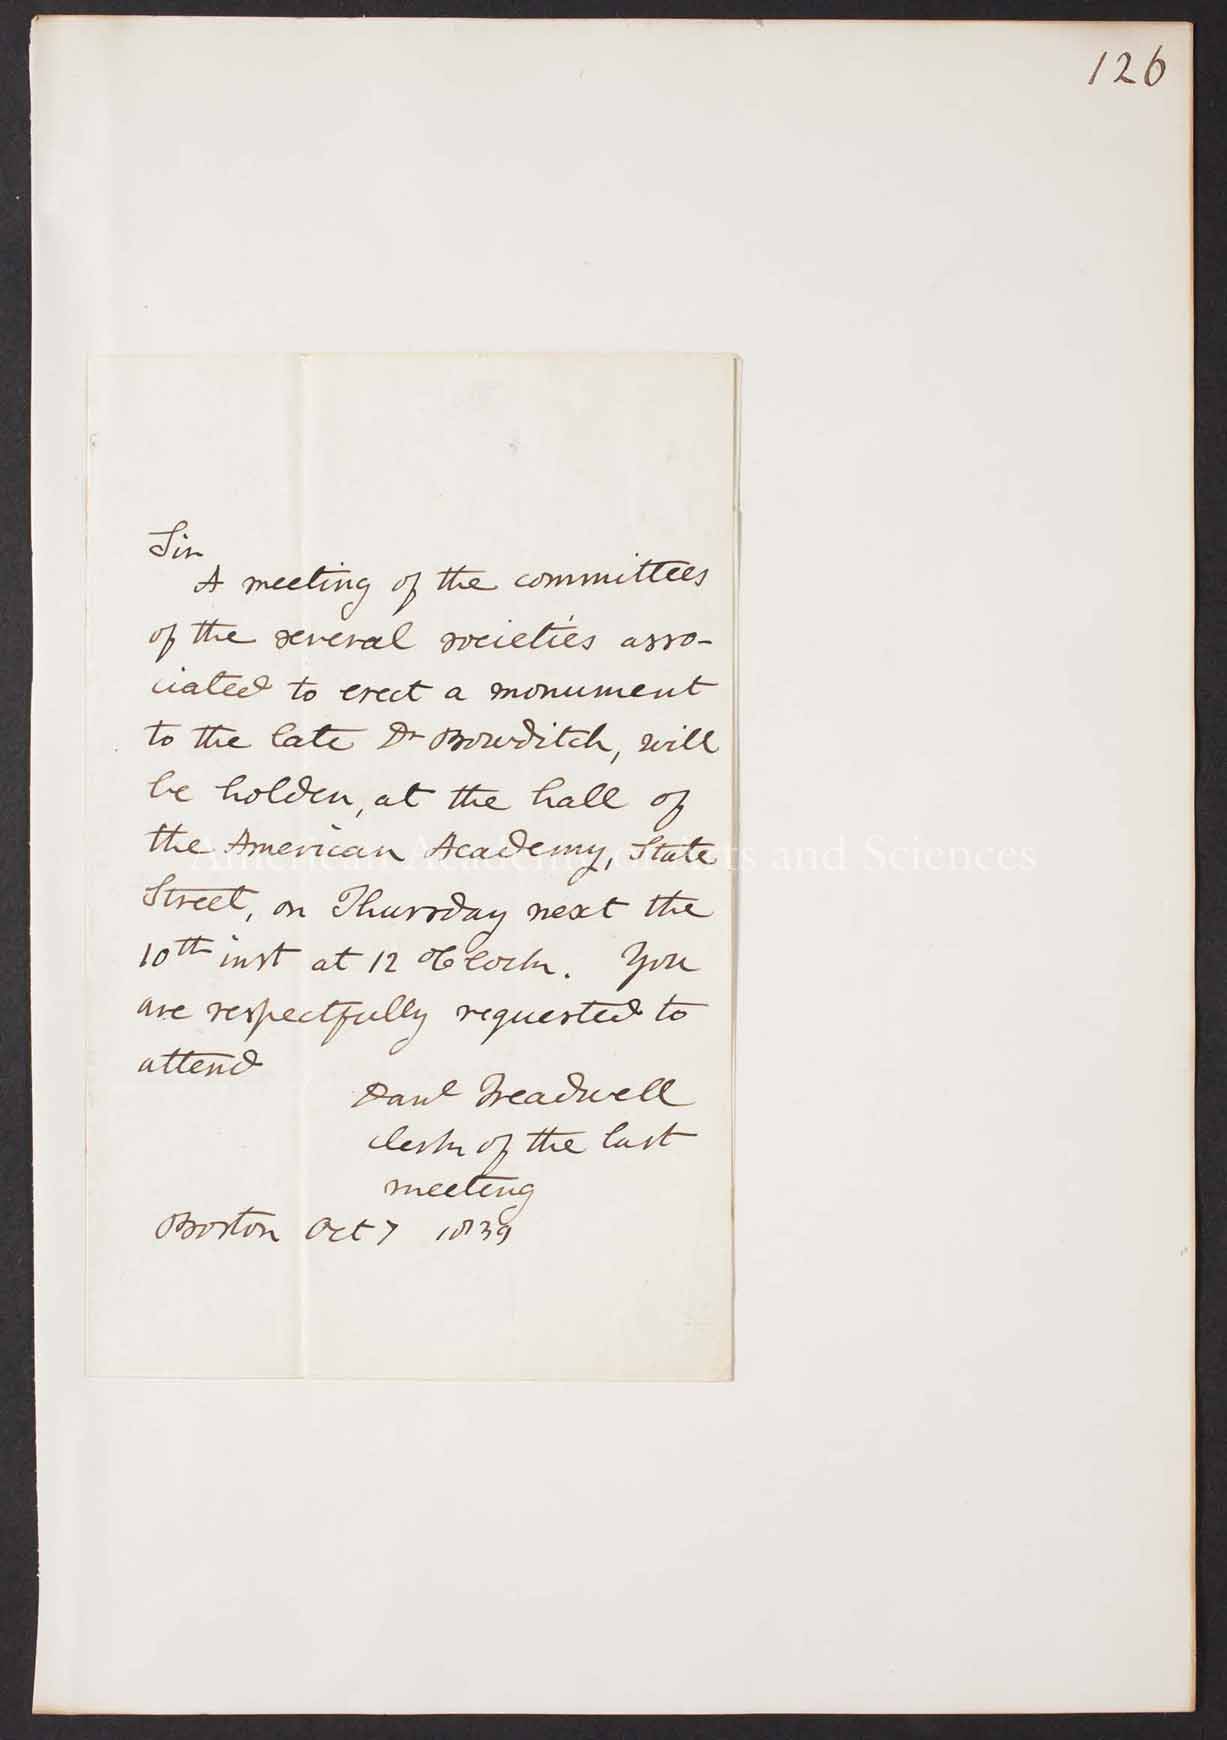 126
Sir
A meeting of the committees
of the several societies asso-
ciated to erect a monument
to the late Dr Bowditch, will
be holden, at the hall of
the American Academy, State
Street, on Thursday next the
10th inst at 12 oClock. You
are respectfully requested to
attend
Danl Treadwell
clerk of the last
meeting
Boston Oct 7 1839
American Academy of Arts and Sciences